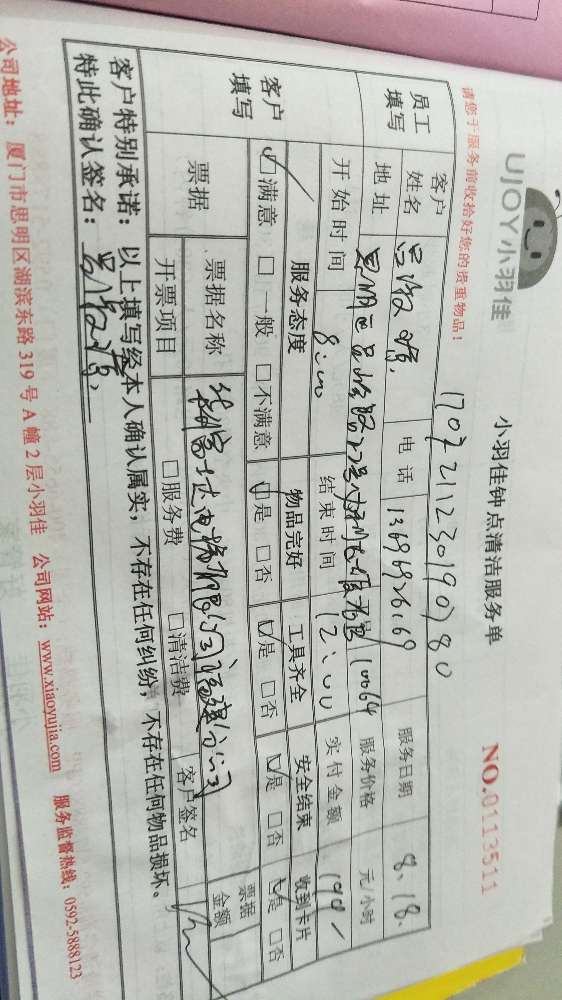 UJOY小羽佳
小羽佳钟点清洁服务单
NO.0113511
请您于服务前收拾好您的贵重物品!
员工填写
客户姓名
电话 13696926169
服务日期 8.18.
地址
服务价格 元/小时
开始时间 8:00
结束时间 12:00
实付金额
客户填写
服务态度 物品完好 工具齐全 安全结束 收到卡片
☑满意 □一般 □不满意 ☑是 □否 ☑是 □否 ☑是 □否 ☑是 □否
票据
票据名称
票据金额
开票项目 □服务费 □清洁费 客户签名
客户特别承诺:以上填写经本人确认属实,不存在任何纠纷,不存在任何物品损坏。
特此确认签名:
公司地址:厦门市思明区湖滨东路319号A幢2层小羽佳 公司网站:www.xiaoyujia.com 服务监督热线:0592-5888123